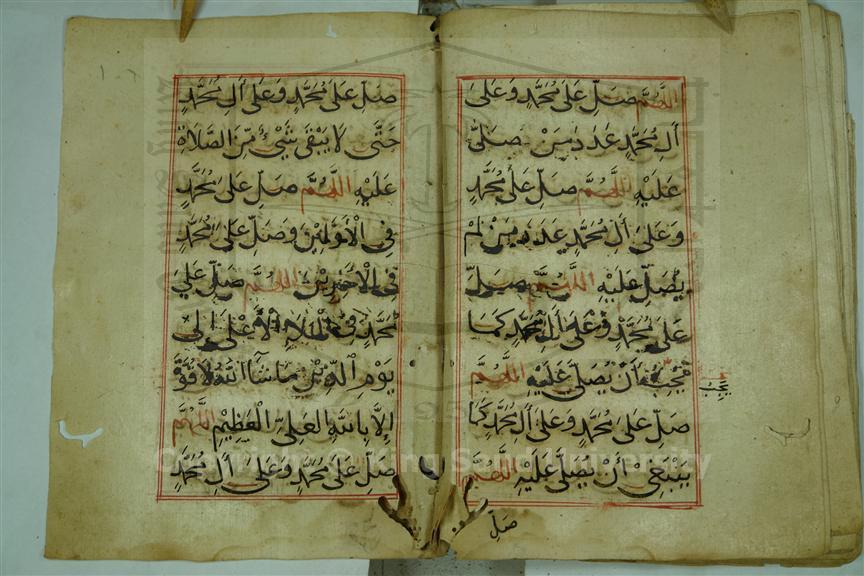 اللهم صَلِّ عَلَى مُحَمَّدٍ وَعَلَى
أَلِ مُحَمَّدٍ عَدَدَ مَنْ صَلَّى
عَلَيْهِ اللهم صَلِّ عَلَى مُحَمَّدٍ
وَعَلَى أَلِ مُحَمَّدٍ عَدَدَ مَنْ لَمْ
يُصَلِّ عَلَيْهِ اللهم صَلِّ
عَلَى مُحَمَّدٍ وَعَلَى أَلِ مُحَمَّدٍ كَمَا
أَنْ يُصَلَّى عَلَيْهِ اللهم
يَجِبُ
صَلِّ عَلَى مُحَمَّدٍ وَعَلَى أَلِ مُحَمَّدٍ كَمَا
يَنْبَغِي أَنْ يُصَلَّى عَلَيْهِ اللهم
صَلِّ
صَلِّ عَلَى مُحَمَّدٍ وَعَلَى أَلِ مُحَمَّدٍ
حَتَّى لَا يَبْقَى شَيْءٌ مِنَ الصَّلَاةِ
عَلَيْهِ اللهم صَلِّ عَلَى مُحَمَّدٍ
فِي الْأَوَّلِيْنَ وَصَلِّ عَلَى مُحَمَّدٍ
فِي الْأَخِرِيْنَ اللهم صَلِّ عَلَى
مُحَمَّدٍ فِي الْمَلَاءِ الْأَعْلَى إِلَى
يَوْمِ الدِّيْنِ مَا شَآءَ اللهُ لَا قُوَّةَ
إِلَّا بِاللهِ الْعَلِيِّ الْعَظِيْمِ اللهم
صَلِّ عَلَى مُحَمَّدٍ وَعَلَى أَلِ مُحَمَّدٍ